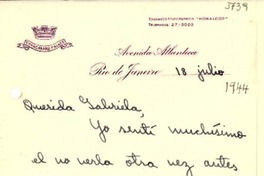 3739
TELEPHONE: 27-0000
Avenida Atlantica
Rio de Janeiro 18 julio
1944
Querida Gabriela,
Yo sentí muchísimo
el no verla otra vez antes